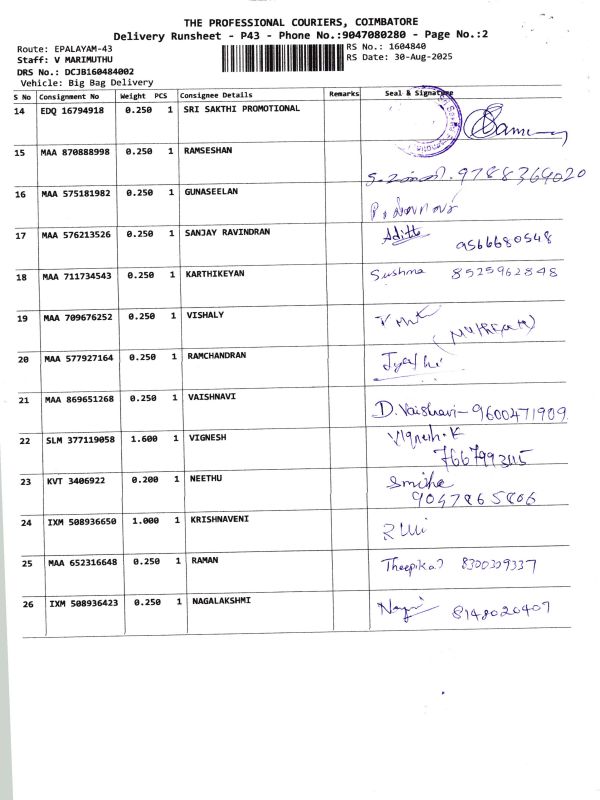 THE PROFESSIONAL COURIERS, COIMBATORE
Delivery Runsheet - P43 - Phone No.:9047080280 - Page No.:2
Route: EPALAYAM-43
RS No.: 1604840
Staff: V MARIMUTHU
RS Date: 30-Aug-2025
DRS No.: DCJB160484002
Vehicle: Big Bag Delivery
S No Consignment No Weight PCS Consignee Details Remarks Seal & Signature
14 EDQ 16794918 0.250 1 SRI SAKTHI PROMOTIONAL
15 MAA 870888998 0.250 1 RAMSESHAN
9788364020
16 MAA 575181982 0.250 1 GUNASEELAN
17 MAA 576213526 0.250 1 SANJAY RAVINDRAN Adith
9566680548
18 MAA 711734543 0.250 1 KARTHIKEYAN Sushma 8525962848
19 MAA 709676252 0.250 1 VISHALY
20 MAA 577927164 0.250 1 RAMCHANDRAN
21 MAA 869651268 0.250 1 VAISHNAVI
D. Vaishavi - 9600471909
22 SLM 377119058 1.600 1 VIGNESH Vignesh.K
23 KVT 3406922 0.200 1 NEETHU
9047865806
24 IXM 508936650 1.000 1 KRISHNAVENI
25 MAA 652316648 0.250 1 RAMAN 8300309337
26 IXM 508936423 0.250 1 NAGALAKSHMI 8148020407